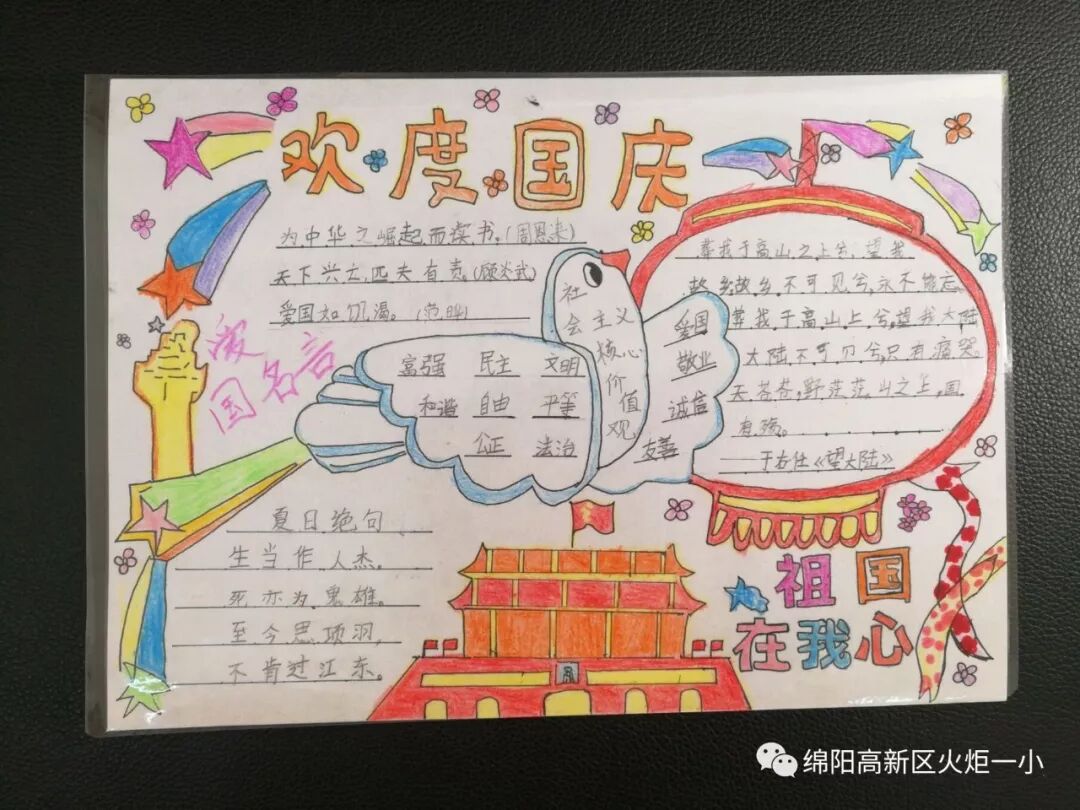 欢度国庆
为中华之崛起而读书。(周恩来)
天下兴亡,匹夫有责。(顾炎武)
爱国如饥渴。(范晔)
爱国名言
社会主义核心价值观
富强 民主 文明
和谐 自由 平等
公正 法治
爱国
敬业
诚信
友善
葬我于高山之上兮,望我
故乡;故乡不可见兮,永不能忘。
葬我于高山上兮,望我大陆
大陆不可见兮,只有痛哭。
天苍苍,野茫茫,山之上,国
有殇。
——于右任《望大陆》
夏日绝句
生当作人杰。
死亦为鬼雄。
至今思项羽,
不肯过江东。
祖国
在我心
绵阳高新区火炬一小